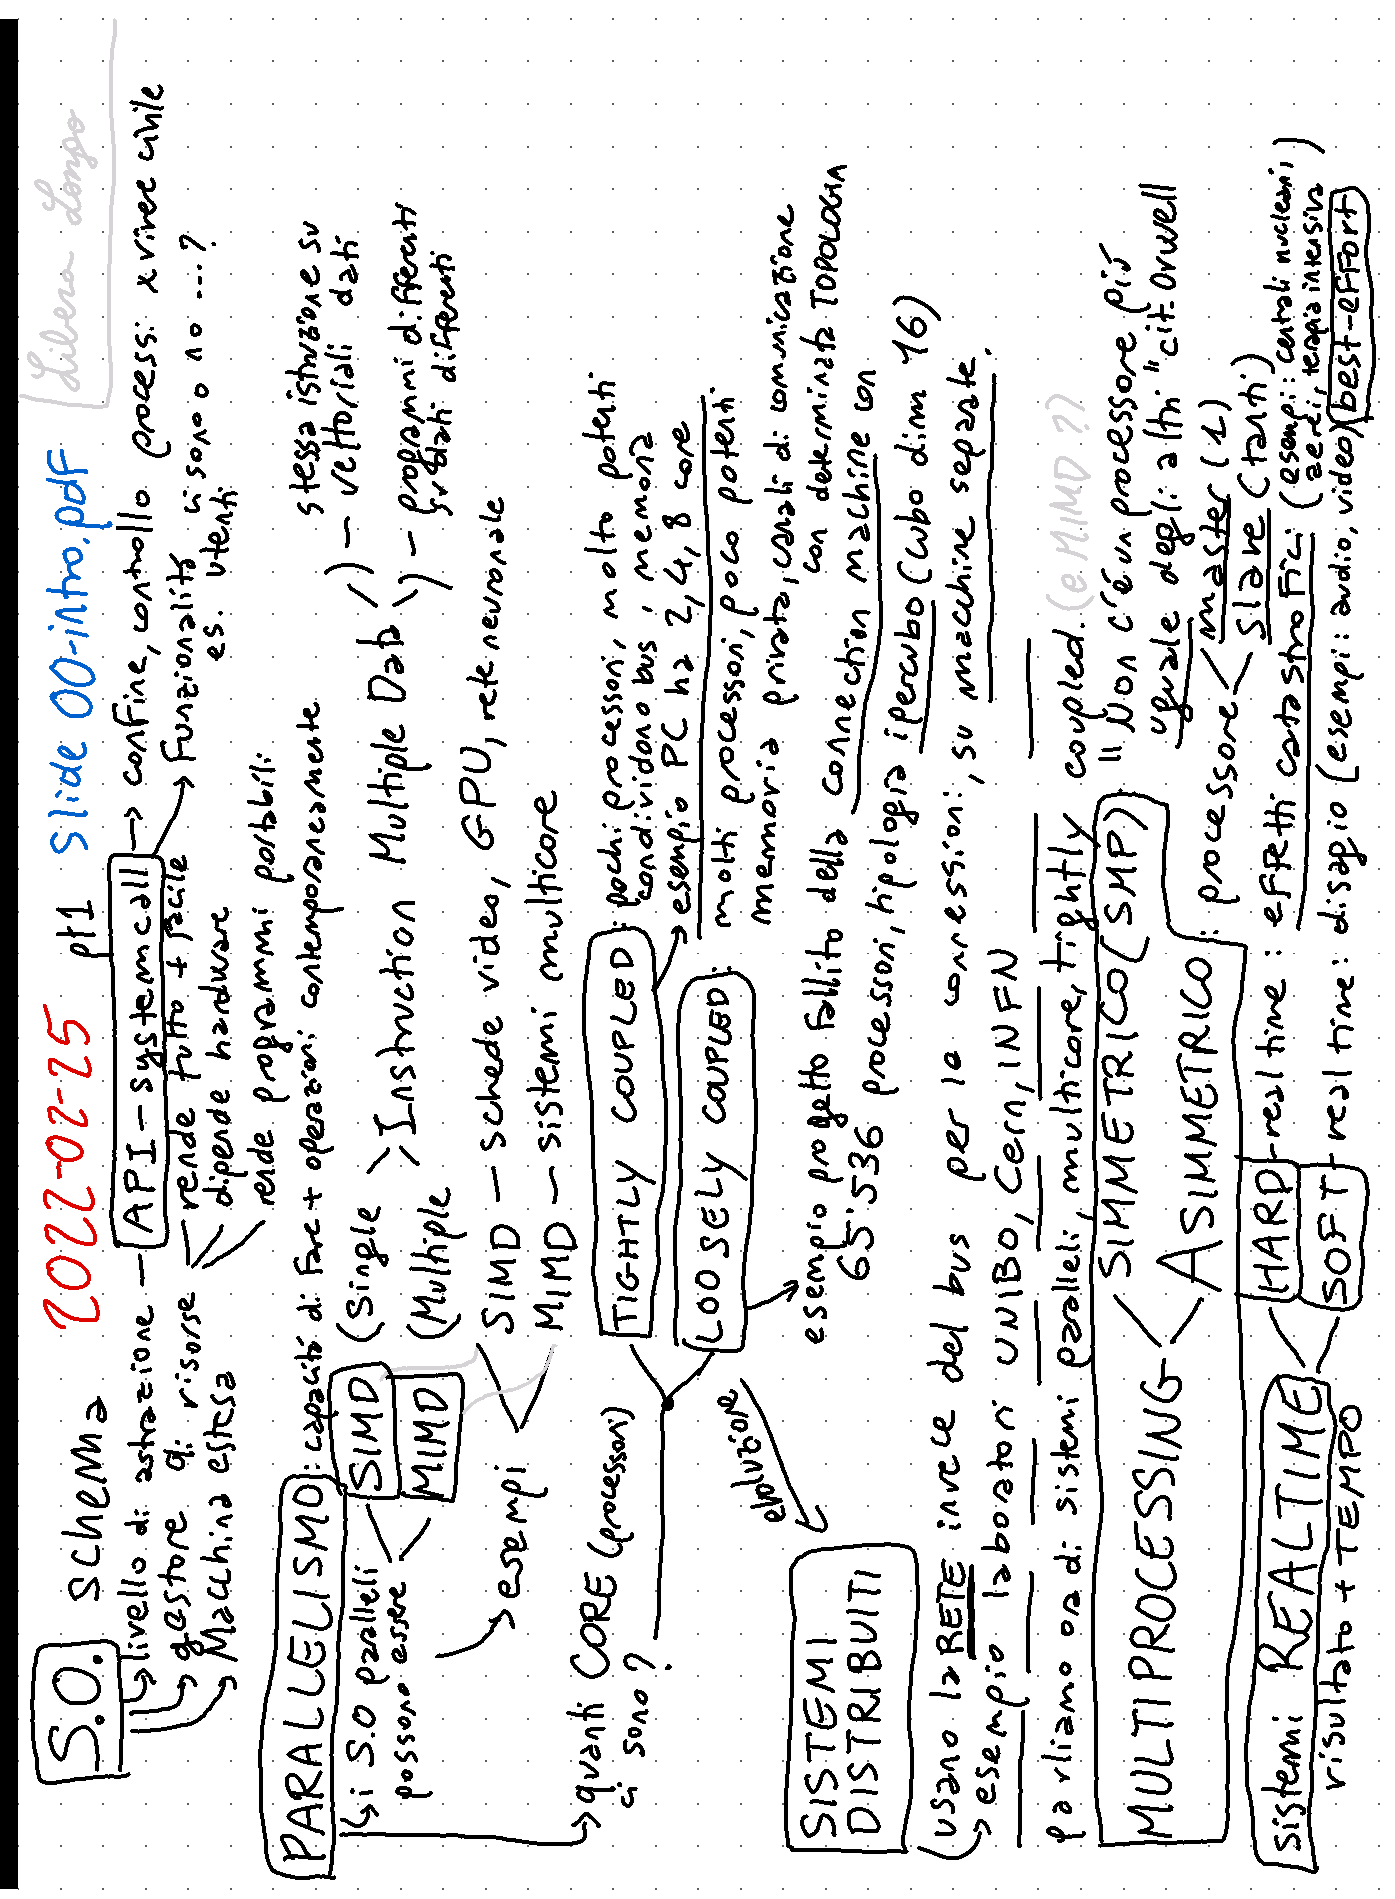 S.O. schema 2022-02-25 pt1 slide 00-intro.pdf Libera Longo
livello di astrazione — API-system call → confine, controllo processi x vivere civile
→ Funzionalità ci sono o no ....?
es. utenti
gestore di risorse
Macchina estesa
rende tutto + facile
dipende hardware
rende programmi portabili
PARALLELISMO: capacità di fare + operazioni contemporaneamente
i S.O paralleli
possono essere
SIMD (Single
MIMD (Multiple
> Instruction Multiple Data
) — stessa istruzione su
vettoriali dati
) — programmi differenti
su dati differenti
→ esempi
SIMD — schede video, GPU, rete neuronale
MIMD — sistemi multicore
→ quanti CORE (processori)
ci sono?
TIGHTLY COUPLED: pochi processori, molto potenti
condividono bus, memoria
→ esempio PC ha 2, 4, 8 core
LOOSELY COUPLED: molti processori, poco potenti
memoria privata, canali di comunicazione
con determinata TOPOLOGIA
esempio progetto fallito della connection machine con
65'536 processori, tipologia ipercubo (cubo dim 16)
evoluzione
SISTEMI
DISTRIBUITI
usano la RETE invece del bus per le connessioni, su macchine separate.
→ esempio laboratori UNIBO, Cern, INFN
parliamo ora di sistemi paralleli, multicore, tightly coupled. (e MIMD ??)
MULTIPROCESSING
SIMMETRICO (SMP): "Non c'è un processore più
uguale degli altri" cit. Orwell
ASIMMETRICO: processore
master (1)
slave (tanti)
sistemi REALTIME
risultato + TEMPO
HARD-real time: effetti catastrofici (esempi: centrali nucleari,
aerei, terapia intensiva)
SOFT-real time: disagio (esempi: audio, video) best-effort